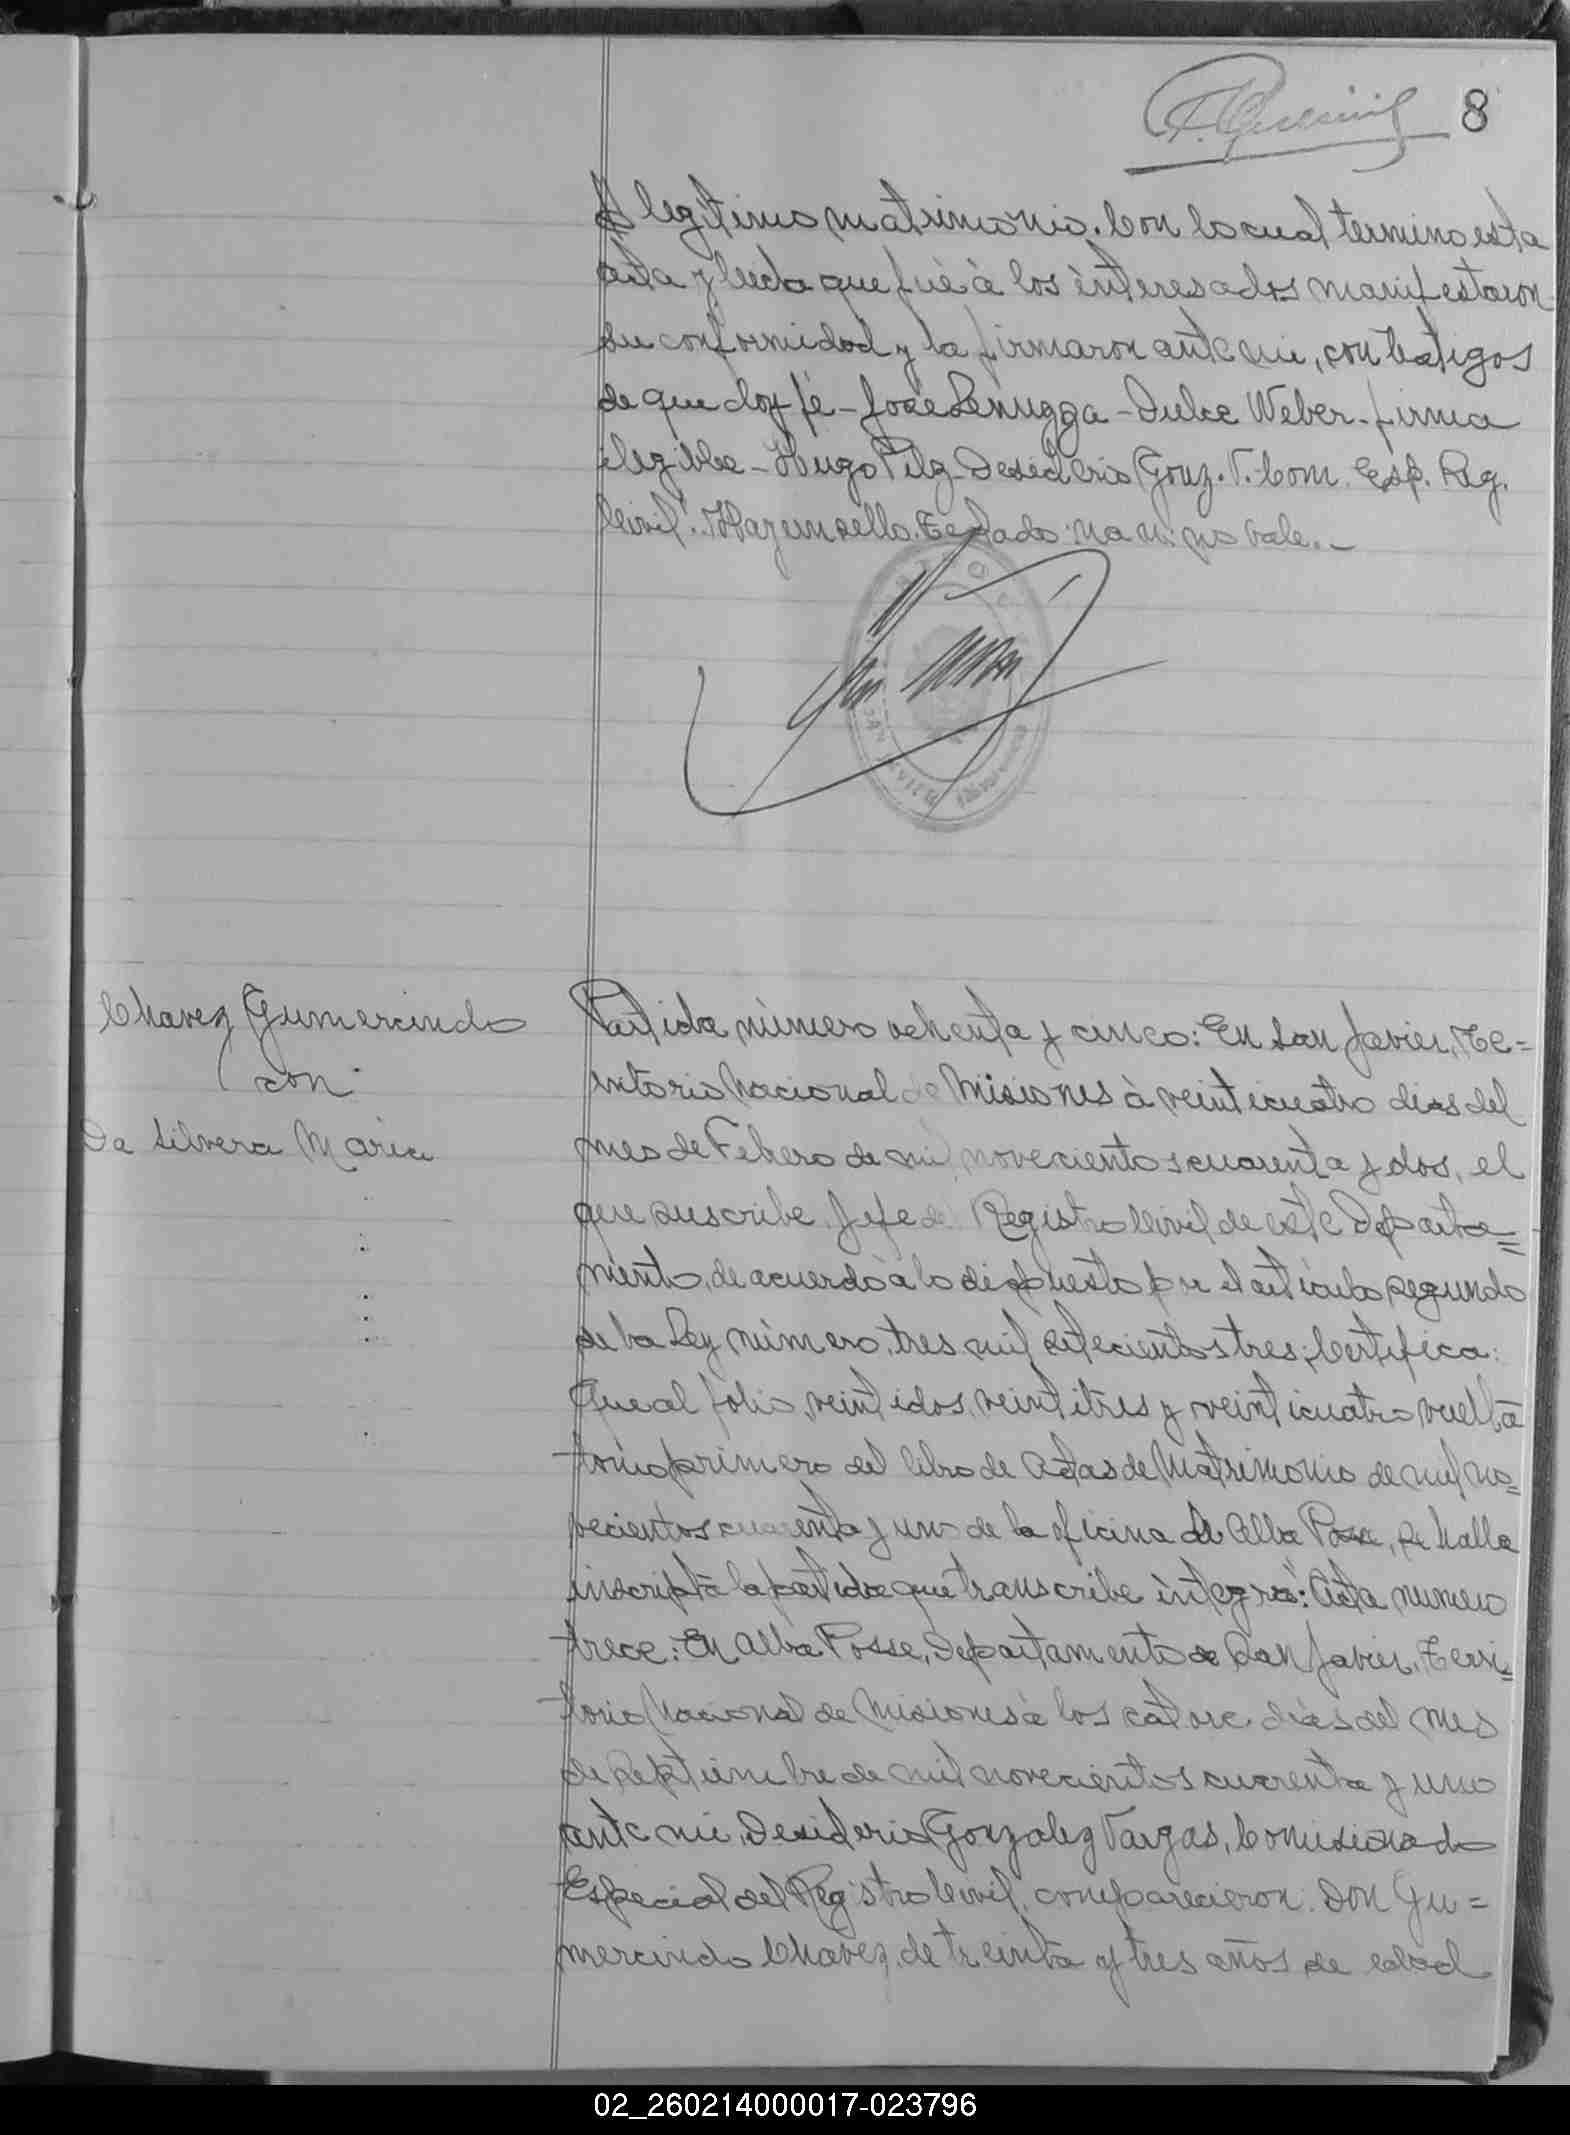 8
legitimo matrimonio. Con lo cual termino esta
acta y leida que fué à los interesados manifestaron
su conformidad y la firmaron ante mi, con testigos
de que doy fé - José - Dulce Weber - firma
ilegible - Hugo Pilz - Desiderio Gonz. V. Com. Esp. Reg.
Civil". Hay un sello. Testado: no vale. -
Chavez Gumercindo
con
Da Silvera Maria
Partida número ochenta y cinco: En San Javier, Te=
rritorio Nacional de Misiones à veinticuatro dias del
mes de Febrero de mil novecientos cuarenta y dos, el
que suscribe Jefe del Registro Civil de este Departa=
mento, de acuerdo à lo dispuesto por el articulo segundo
de la Ley número tres mil setecientos tres; Certifica:
Que al folio veintidos, veintitres y veinticuatro vuelta
tomo primero del libro de Actas de Matrimonio de mil no=
vecientos cuarenta y uno de la oficina de Alba Posse, se halla
inscripta la partida que transcribe integra": Acta numero
trece: En Alba Posse, Departamento de San Javier, Terri=
torio Nacional de Misiones à los catorce dias del mes
de Septiembre de mil novecientos cuarenta y uno
ante mi, Desiderio Gonzalez Vargas, Comisionado
Especial del Registro Civil, comparecieron: Don Gu=
mercindo Chavez, de treinta y tres años de edad
02_260214000017-023796